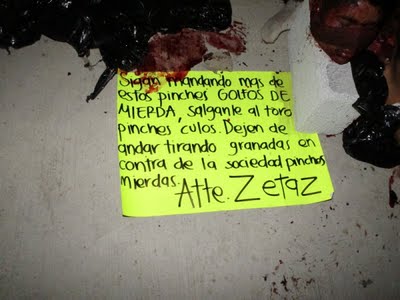 Sigan mandando mas de
estos pinches GOLFOS DE
MIERDA, salganle al toro
pinches culos. Dejen de
andar tirando granadas en
contra de la sociedad pinches
mierdas.
Atte. Zetaz